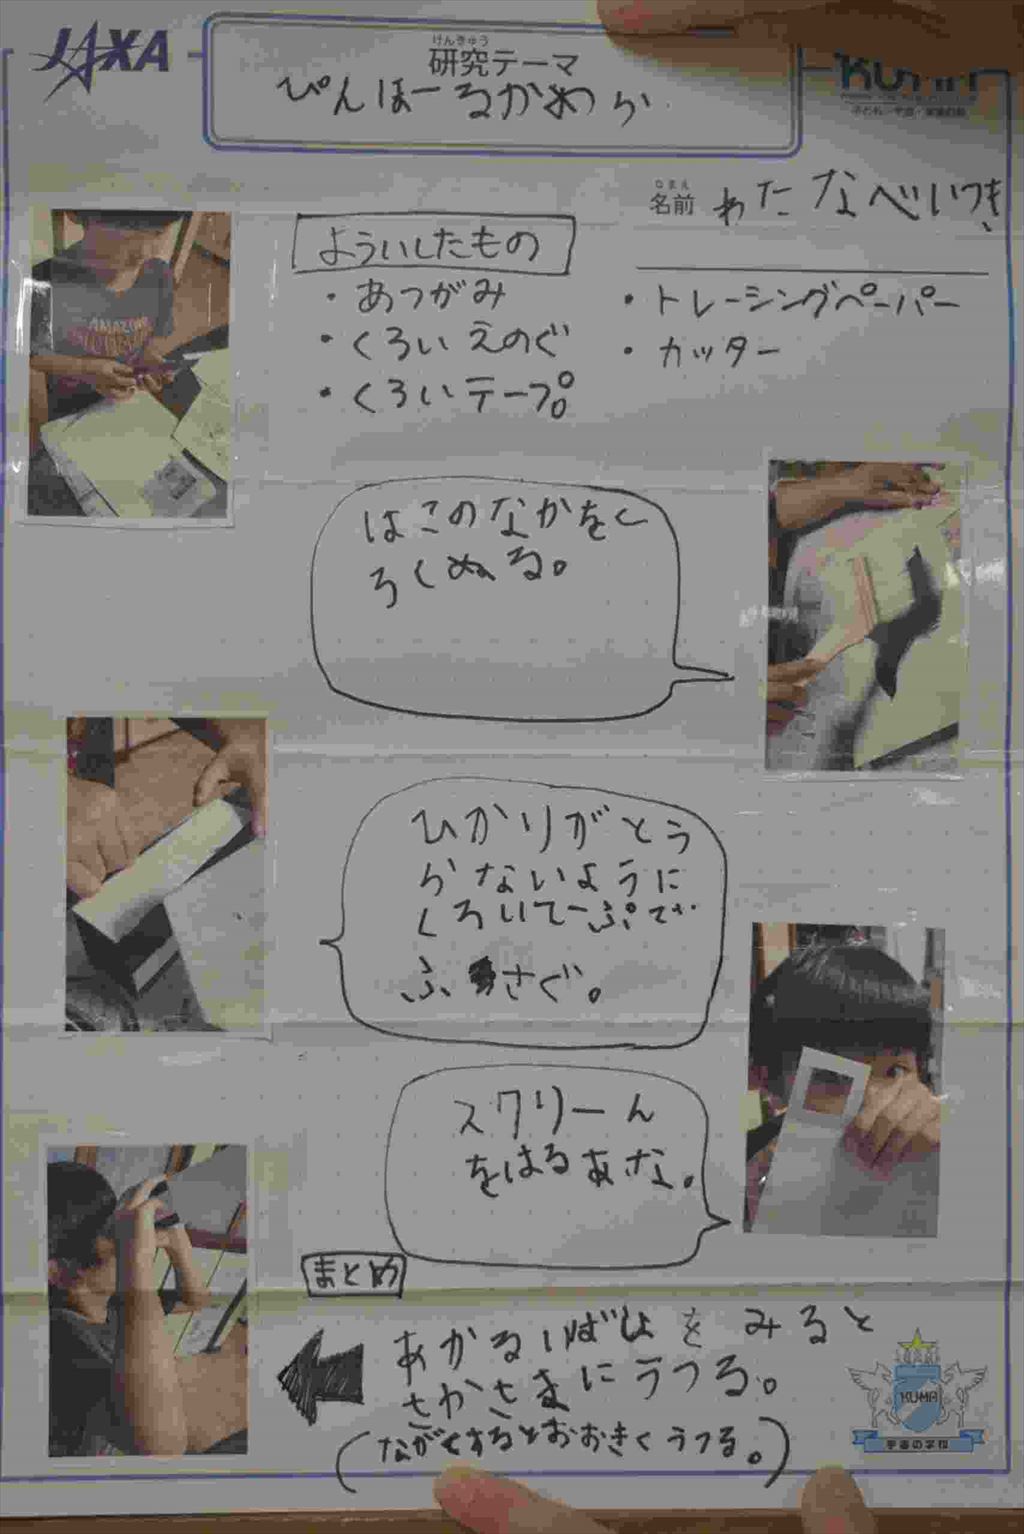 JAXA
けんきゅう
研究テーマ
ぴんほーるかめら
なまえ
名前 わたなべいつき
よういしたもの
・あつがみ
・くろいえのぐ
・くろいテープ
・トレーシングペーパー
・カッター
AMAZING
はこのなかをく
ろくぬる。
ひかりがとう
らないように
くろいてーぷで
ふさぐ。
スクリーん
をはるあな。
まとめ
あかるいばしょをみると
さかさまにうつる。
(ながくするとおおきくうつる。)
KUMA
宇宙の学校